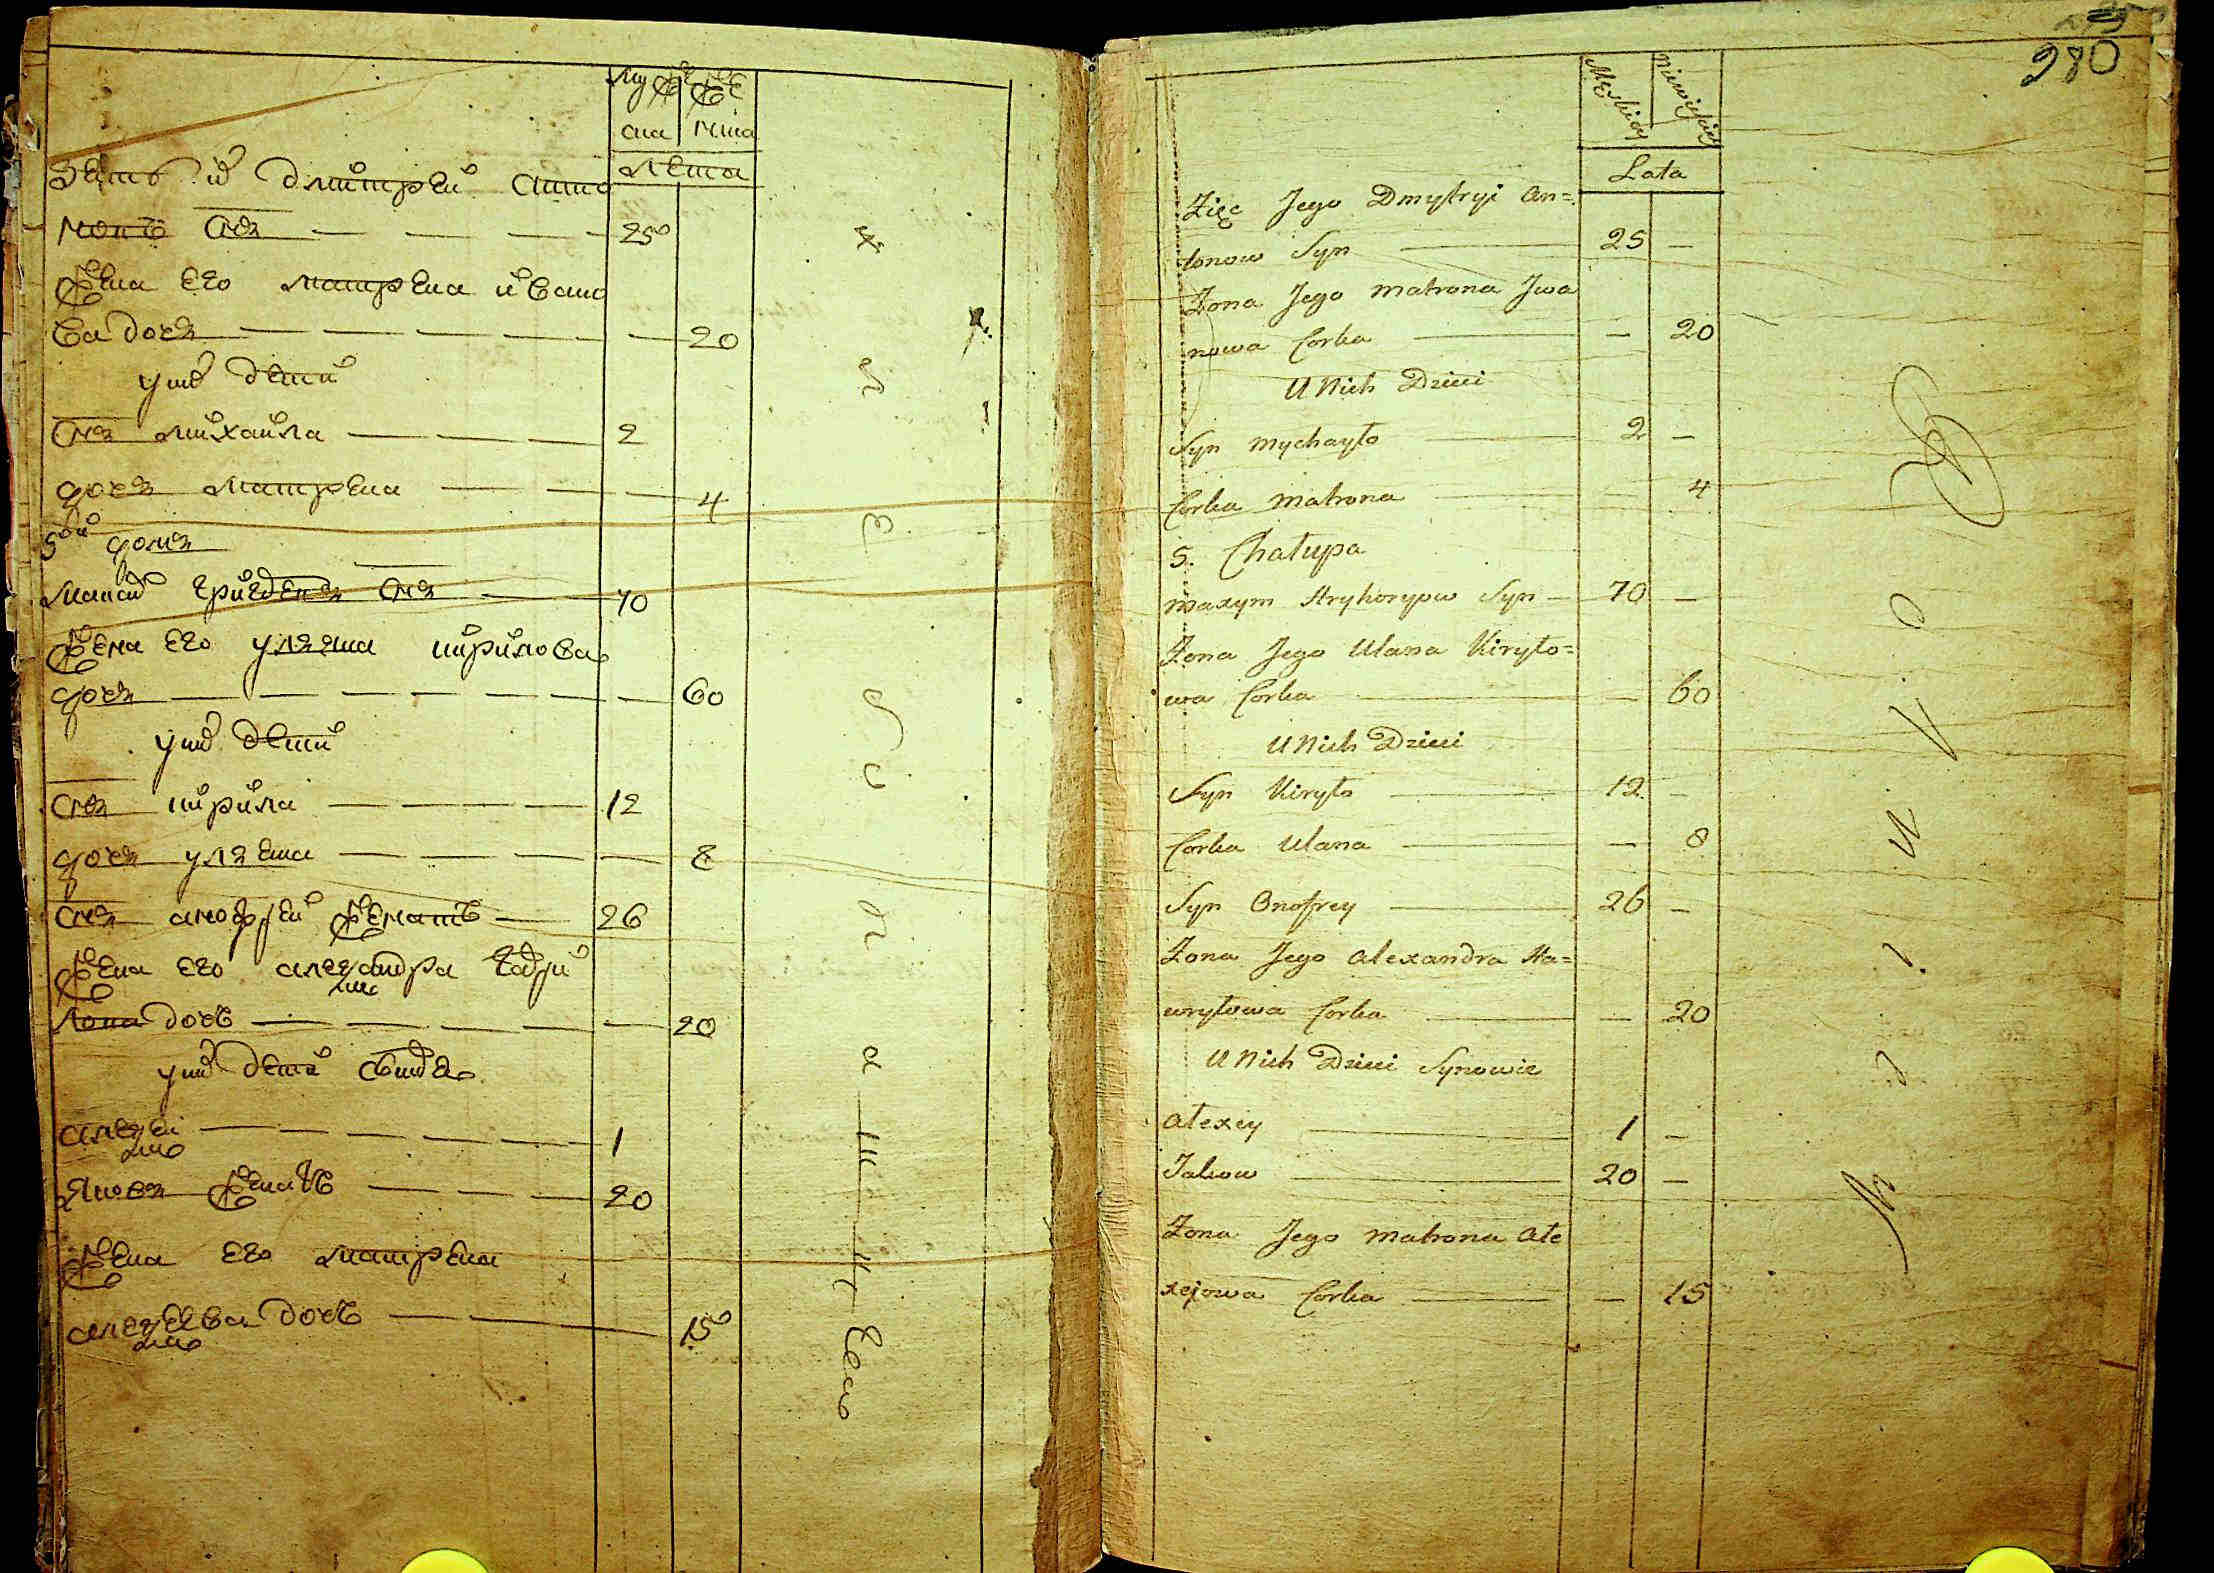 муже
жен
ска
ска
лета
зять и͡х дмитрей анто
новъ сн҃ъ 25
жена его матрена ивано
ва дочъ 20
у них дети
сн҃ъ михаила 2
дочъ матрена 4
5ои домъ
сн҃ъ 70
жена его улъена кирилова
дочъ 60
у них дети
сн҃ъ кирила 12
дочъ улъена 8
сн҃ъ анофрей женатъ 26
жена его александра гаври
лова дочь 20
у них дети
алексеи 1
яковъ женатъ 20
жена его матрена
алексеева дочь 15
980
Męskiey
Niewieskiey
Lata
Zięc Jego Dmytryi An=
tonow Syn 25 —
Zona Jego Matrona Jwa
nowa Corka — 20
U Nich Dzieci
Syn Mychayło 2 —
Corka Matrona 4
5. Chałupa
Maxym Hryhorypw Syn 70 —
Zona Jego Ulana Kiryło=
wa Corka — 60
U Nich Dzieci
Syn Kiryło 12 —
Corka Ulana — 8
Syn Onofrey 26 —
Zona Jego Alexandra Ha=
wryłowa Corka — 20
U Nich Dzieci Synowie
Alexey 1 —
Jakow 20 —
Zona Jego Matrona Ale
xejowa Corka — 15